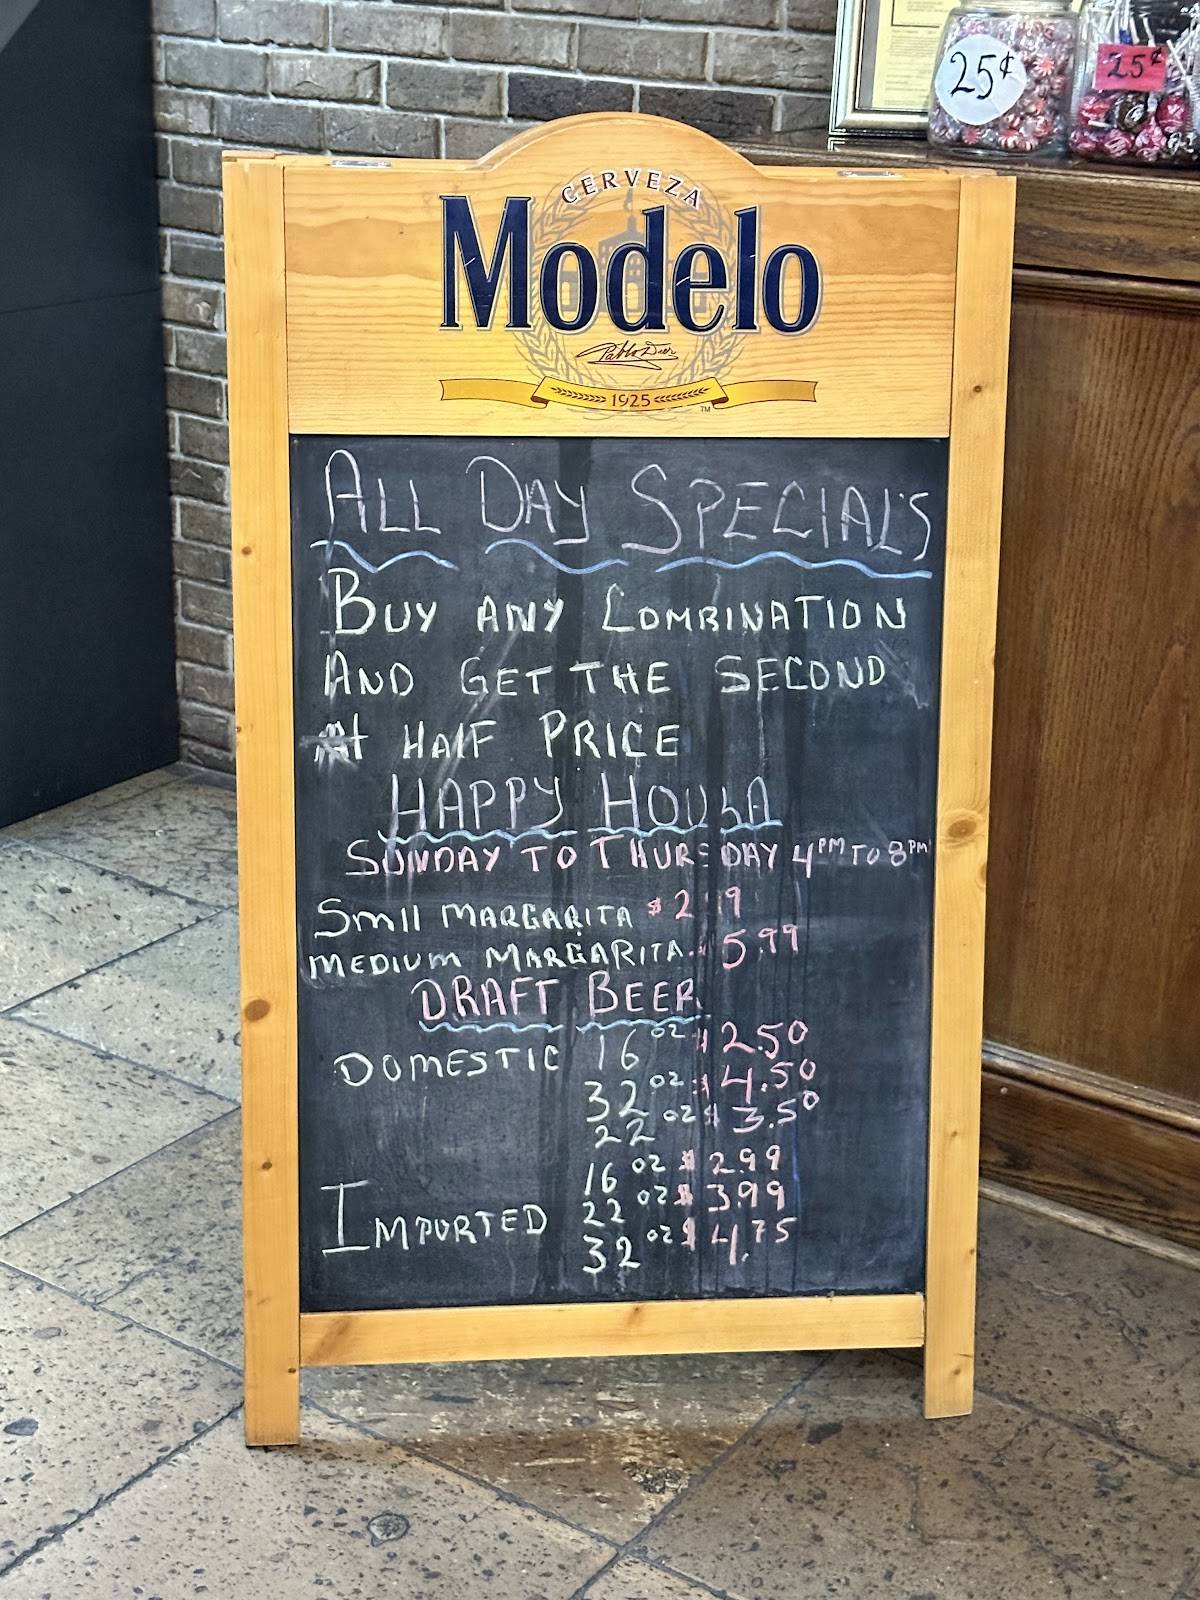 25¢
25¢
CERVEZA
Modelo
1925
TM
ALL DAY SPECIALS
BUY ANY COMBINATION
AND GET THE SECOND
At HALF PRICE
HAPPY HOURA
SUNDAY TO THURSDAY 4PM TO 8PM
Smll MARGARITA
MEDIUM MARGARITA $5.99
DRAFT BEER
DOMESTIC 16 oz $2.50
32 oz $4.50
22 oz $3.50
16 oz $2.99
IMPORTED 22 oz $3.99
32 oz $4.75